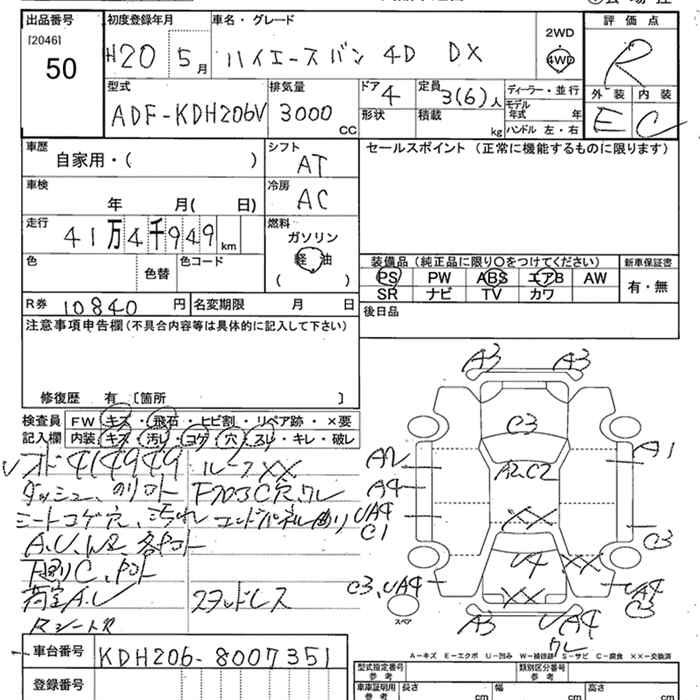 出品番号
[2046]
50
初度登録年月
H20 5月
車名・グレード
ハイエースバン 4D DX
2WD
4WD
評価点
R
外装 内装
E C
型式
ADF-KDH206V
排気量
3000 CC
ドア
4
形状
定員
3(6)人
積載
kg
ディーラー・並行
モデル年式 年
ハンドル 左・右
車歴
自家用・( )
シフト
AT
車検
年 月( 日)
冷房
AC
走行
41万4千949km
燃料
ガソリン
軽油
( )
色
色替
色コード
R券 10840円
名変期限 月 日
セールスポイント (正常に機能するものに限ります)
装備品(純正品に限り○をつけてください)
PS PW ABS エアB AW
SR ナビ TV カワ
新車保証書
有・無
後日品
注意事項申告欄(不具合内容等は具体的に記入して下さい)
修復歴 有〔箇所 〕
検査員記入欄
FW キズ・飛石・ヒビ割・リペア跡・×要
内装・キズ・汚レ・コゲ・穴・スレ・キレ・破レ
414949 ルーフXX
シートコゲ穴、汚れ
A.U.W2.各部
荷室A.U スタッドレス
A3 A3
C3
A2 A2C2 A1
A4
UA4 XX
C1 C3
U4 XX
C3,UA4 XX UA4
C3
スペア
A3 UA4
A-キズ E-エクボ U-凹み W-補修跡 S-サビ C-腐食 XX-交換済
車台番号
KDH206-8007351
登録番号
型式指定番号
参考
類別区分番号
参考
車庫証明用
参考
長さ cm
幅 cm
高さ cm